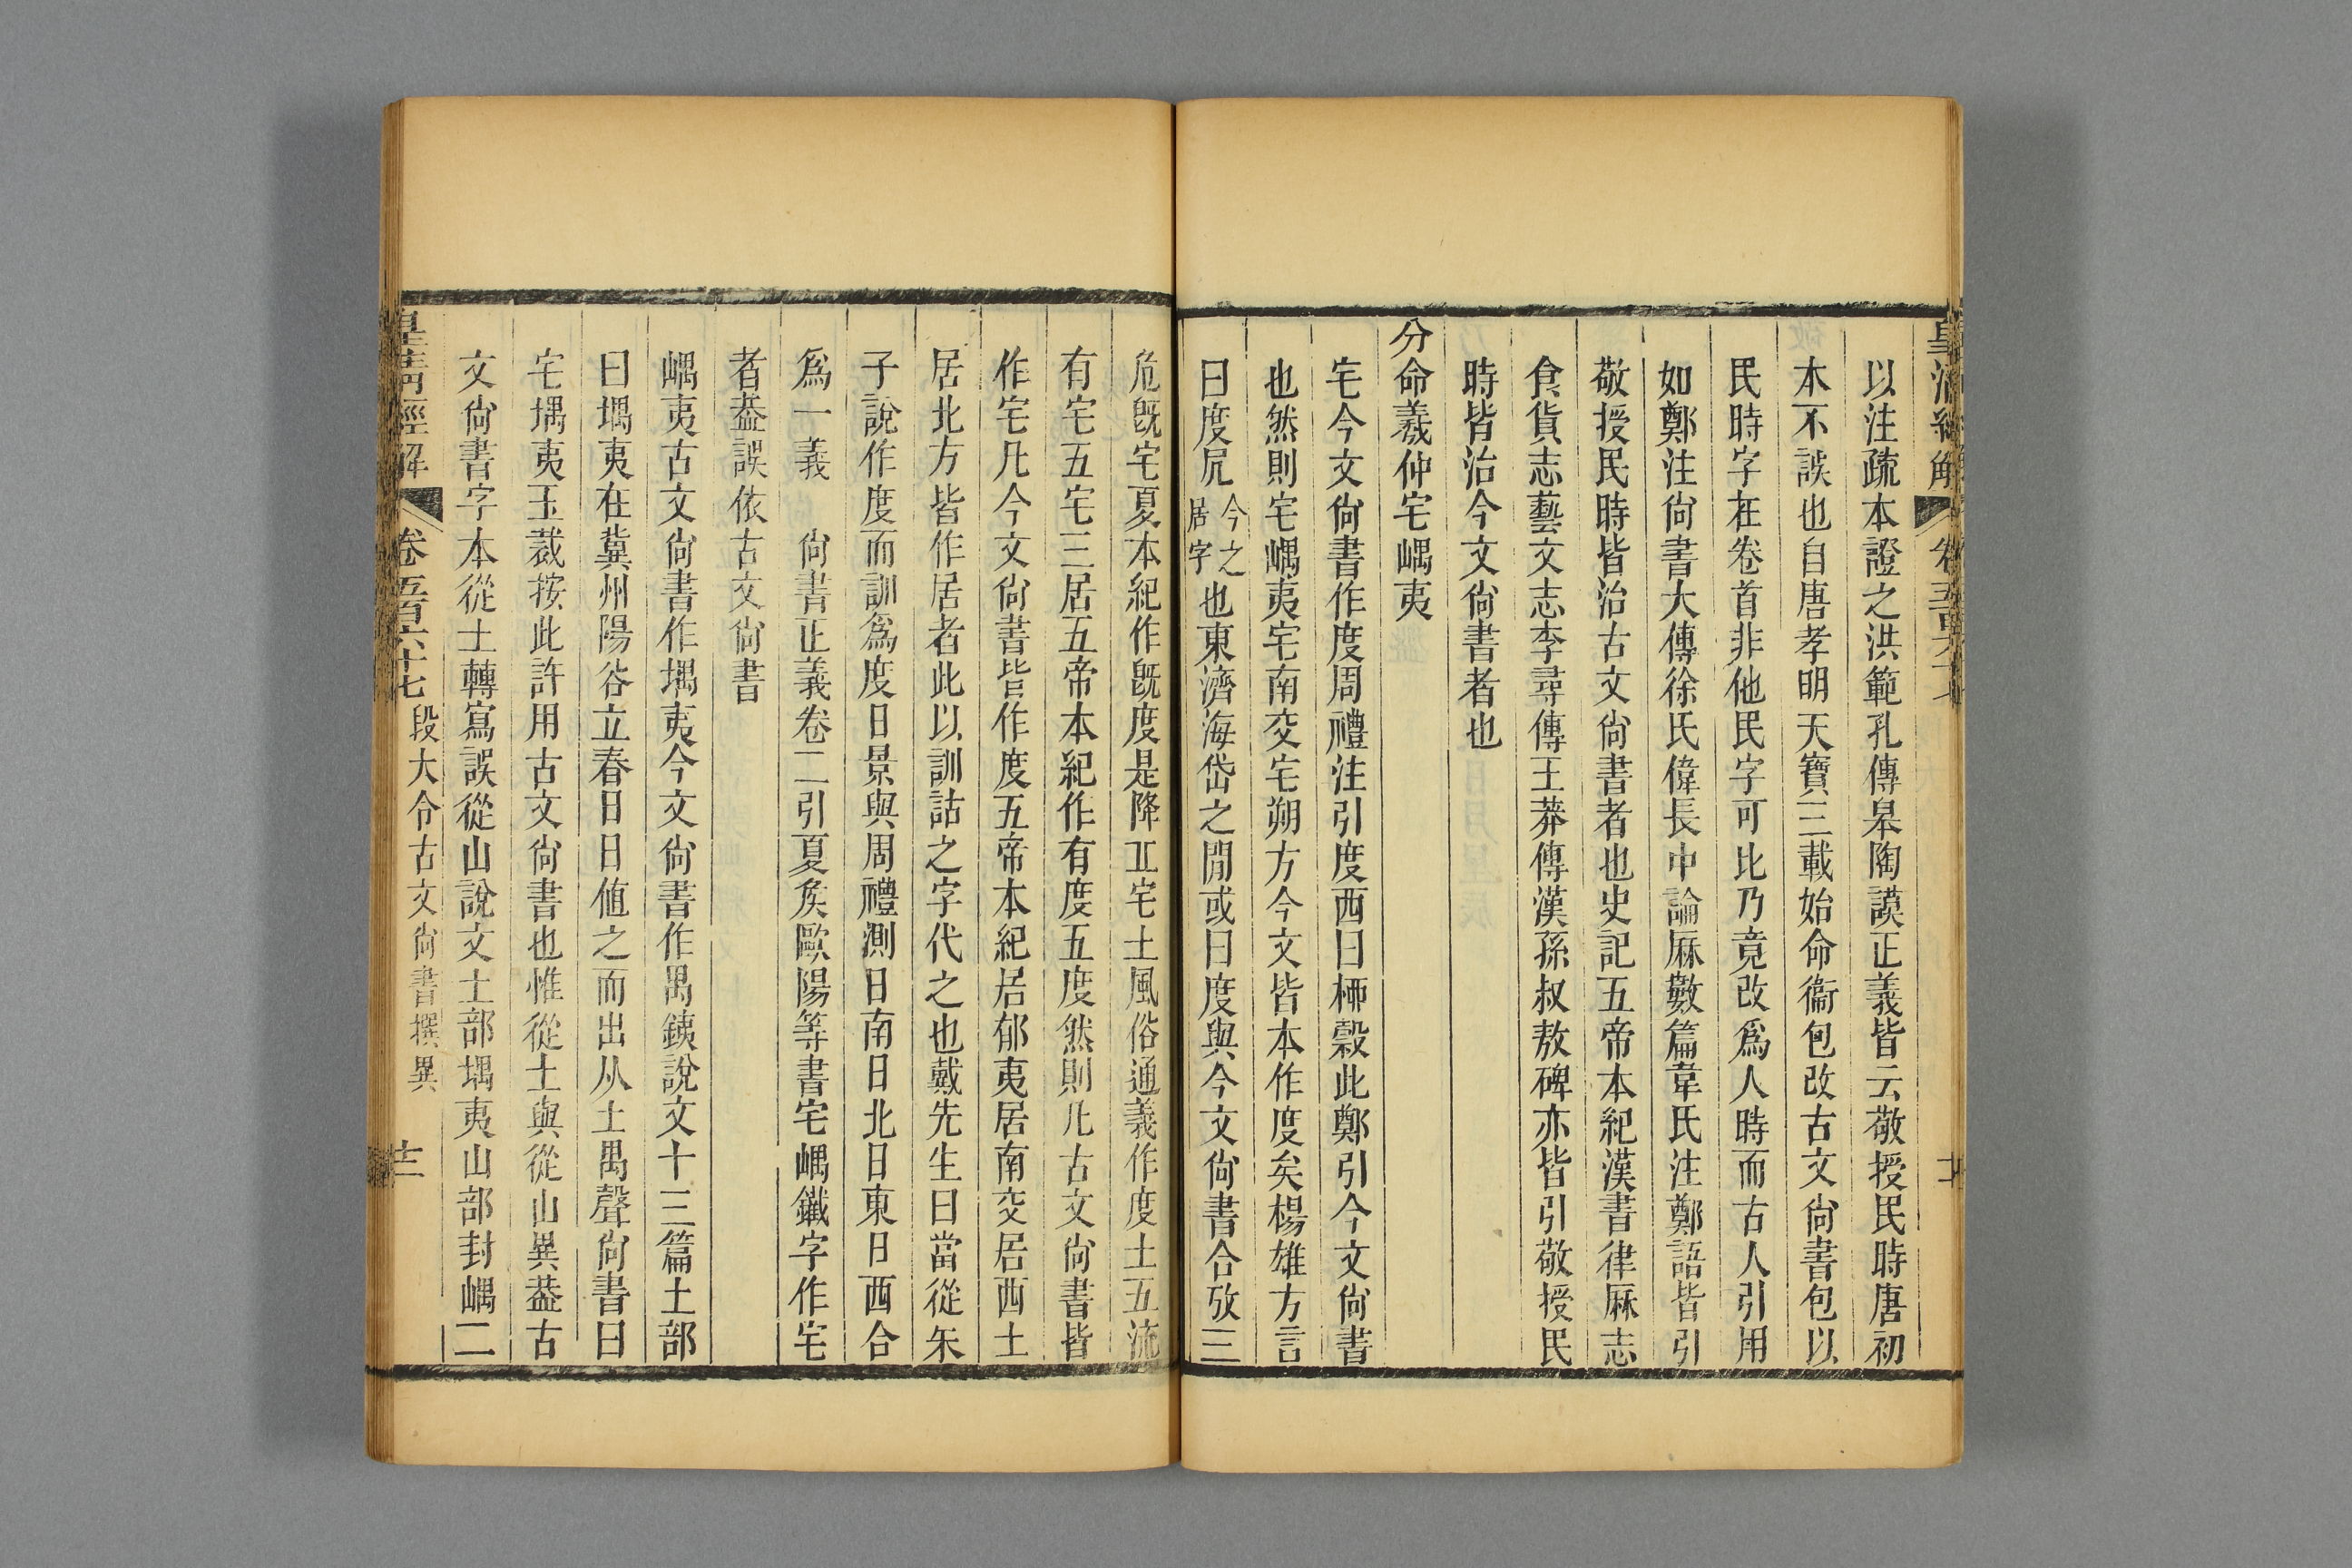 以注疏本證之洪範孔傳皋陶謨正義皆云敬授民時唐初
本不誤也自唐孝明天寶三載始命衞包改古文尙書包以
民時字在卷首非他民字可比乃竟改爲人時而古人引用
如鄭注尙書大傳徐氏偉長中論厤數篇韋氏注鄭語皆引
敬授民時皆治古文尙書者也史記五帝本紀漢書律厤志
食貨志藝文志李尋傳王莽傳漢孫叔敖碑亦皆引敬授民
時皆治今文尙書者也
分命羲仲宅嵎夷
宅今文尙書作度周禮注引度西曰柳穀此鄭引今文尙書
也然則宅嵎夷宅南交宅朔方今文皆本作度矣楊雄方言
曰度凥今之居字也東濟海岱之閒或曰度與今文尙書合攷三
危旣宅夏本紀作旣度是降丘宅土風俗通義作度土五流
有宅五宅三居五帝本紀作有度五度然則凡古文尙書皆
作宅凡今文尙書皆作度五帝本紀居郁夷居南交居西土
居北方皆作居者此以訓詁之字代之也戴先生曰當從朱
子說作度而訓爲度日景與周禮測日南日北日東日西合
爲一義　尙書正義卷二引夏矦歐陽等書宅嵎鐵字作宅
者葢誤依古文尙書
嵎夷古文尙書作堣夷今文尙書作禺銕說文十三篇土部
曰堣夷在冀州陽谷立春日日値之而出从土禺聲尙書曰
宅堣夷玉裁按此許用古文尙書也惟從土與從山異葢古
文尙書字本從土轉寫誤從山說文土部堣夷山部封嵎二
皇淸經解 卷五百六十七 段大令古文尙書撰異 十三